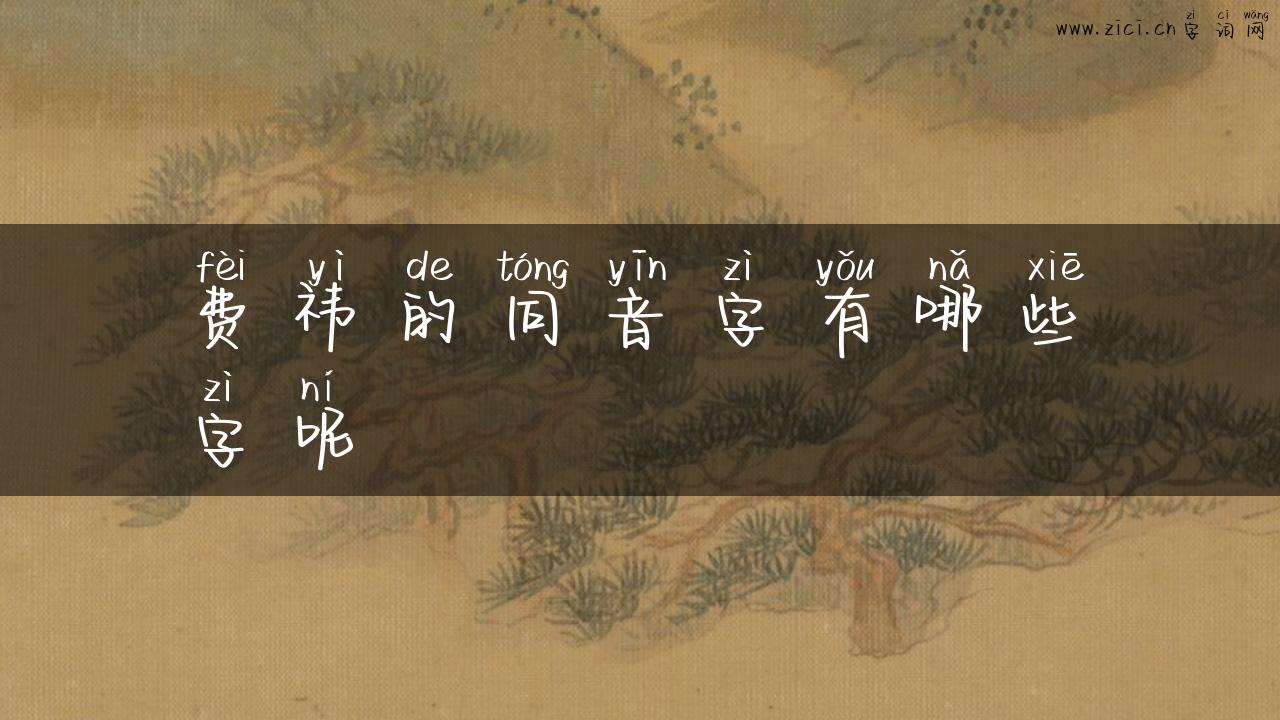 zì cí wǎng
www.zici.cn 字词网
fèi yì de tóng yīn zì yǒu nǎ xiē
费祎的同音字有哪些
zì ní
字呢